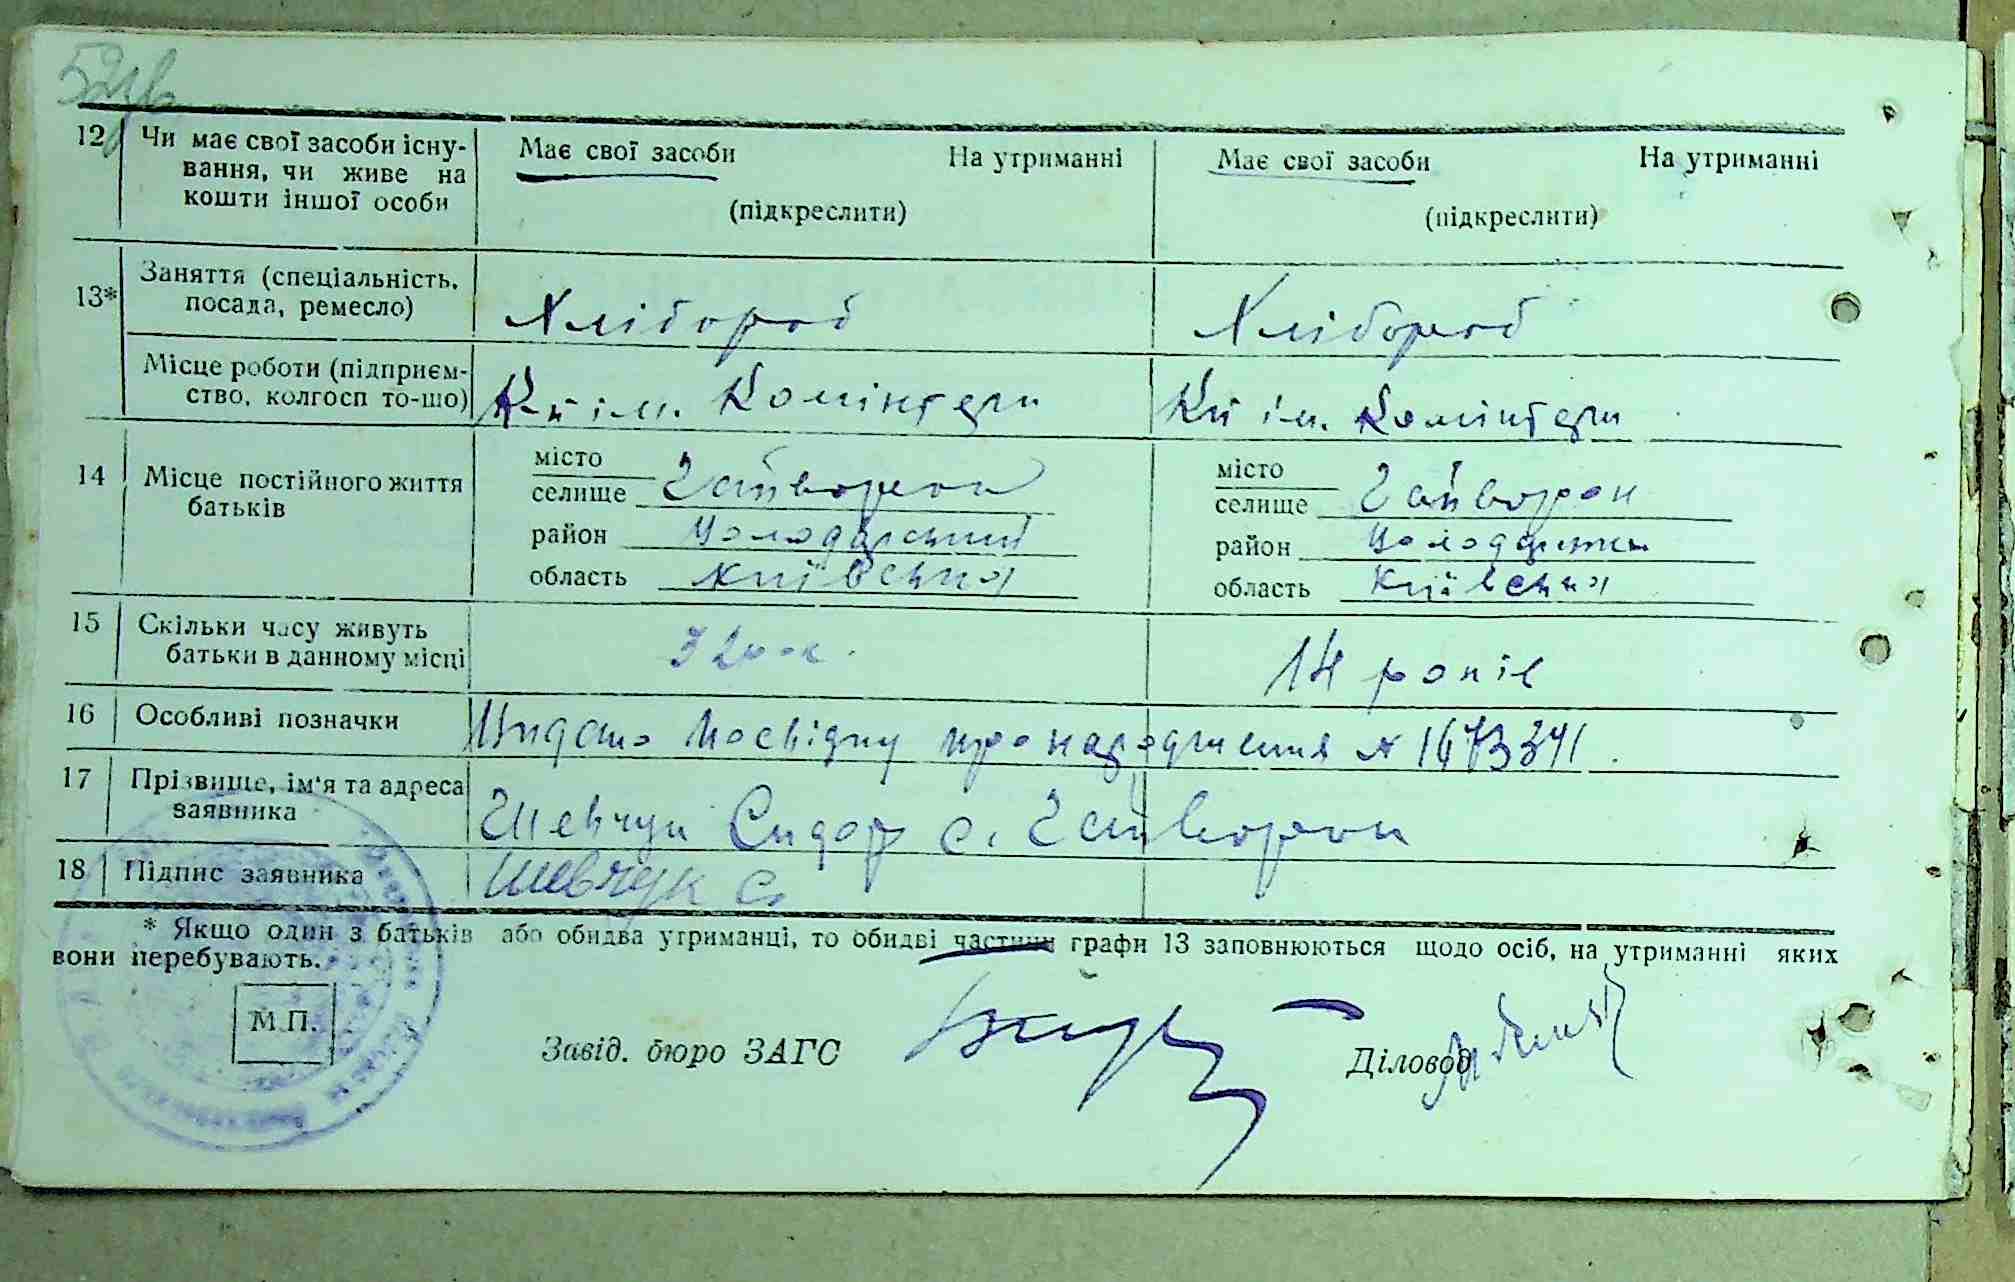 52зв
12 Чи має свої засоби існу-
вання, чи живе на
кошти іншої особи
Має свої засоби На утриманні
(підкреслити)
Має свої засоби На утриманні
(підкреслити)
13* Заняття (спеціальність,
посада, ремесло)
Хлібороб
Хлібороб
Місце роботи (підприєм-
ство, колгосп то-що)
К-п ім. Комінтерн
Кп ім. Комінтерн
14 Місце постійного життя
батьків
місто
селище Гайворон
район Володарський
область Київська
місто
селище Гайворон
район Володарська
область Київська
15 Скільки часу живуть
батьки в данному місці
32 рок.
14 років
16 Особливі позначки
Видано посвідку про народження № 1673371.
17 Прізвище, ім'я та адреса
заявника
Шевчук Сидор с. Гайворон
18 Підпис заявника
Шевчук С.
* Якщо один з батьків або обидва утриманці, то обидві частини графи 13 заповнюються щодо осіб, на утриманні яких
вони перебувають.
М.П.
Завід. бюро ЗАГС
Діловод